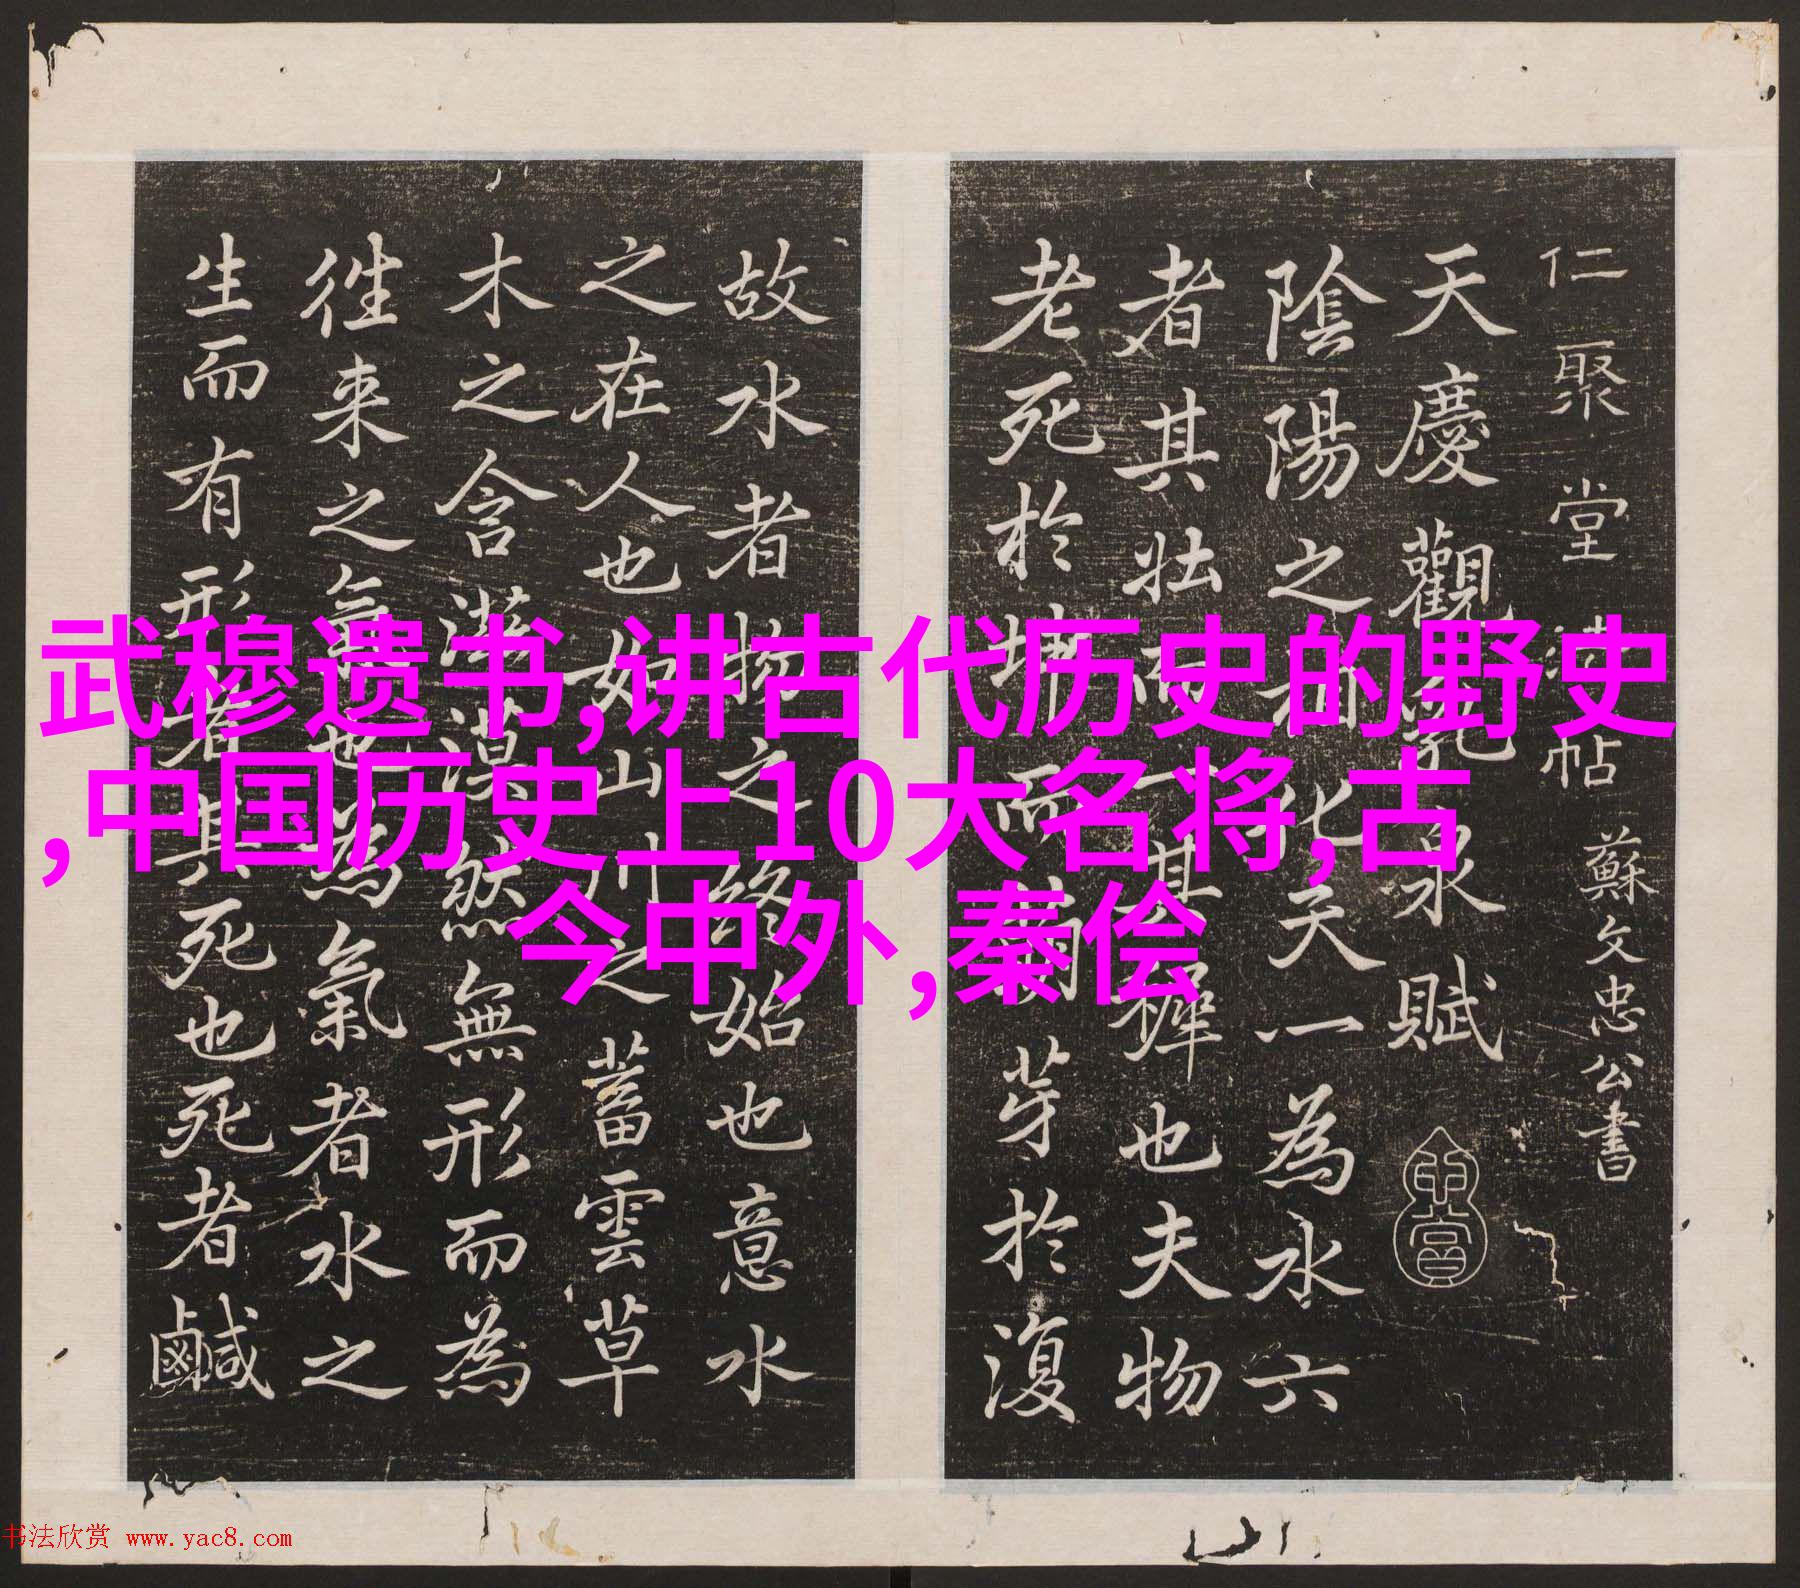 仁聚堂法帖 蘇文忠公書
天慶觀乳泉賦
陰陽之相化天一為水六
者其壯而一其穉也夫物
老死於
芽於復
故水者物之終始也意水
之在人也如山川之蓄雲草
木之含滋漠然無形而為
徃来之氣也為氣者水之
生而有形者其死也死者鹹
武穆遗书,讲古代历史的野史
,中国历史上10大名将,古
今中外,秦侩
书法欣赏 www.yac8.com